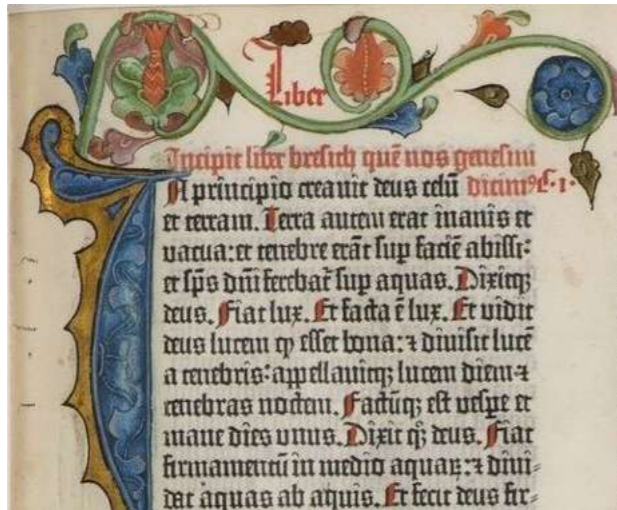 Liber
Incipit liber bresich quē nos genesim
A principio creauit deus celū dicim⁹ C. 1.
et terram. Terra autem erat inanis et
vacua: et tenebre erāt sup faciē abissi:
et sp̄s dn̄i ferebat̄ sup aquas. Dixitqꝫ
deus. Fiat lux. Et facta ē lux. Et vidit
deus lucem ꝙ esset bona: ⁊ diuisit lucē
a tenebris: appellauitqꝫ lucem diem ⁊
tenebras noctem. Factūqꝫ est vespe et
mane dies vnus. Dixit qꝫ deus. Fiat
firmamentū in medio aquaꝝ: ⁊ diui⸗
dat aquas ab aquis. Et fecit deus fir⸗